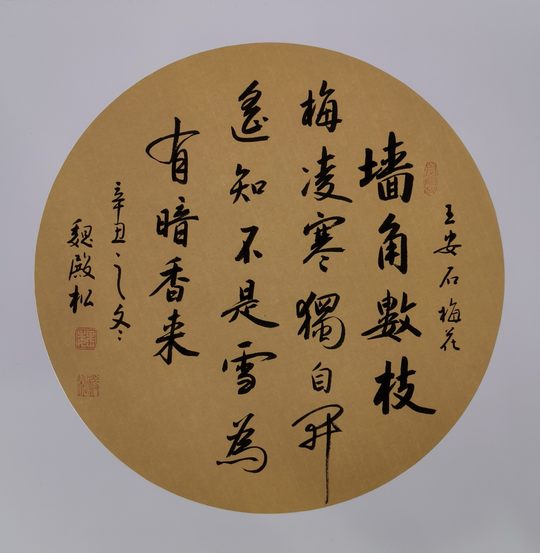 王安石梅花
墙角數枝
梅凌寒獨自開
遙知不是雪為
有暗香来
辛丑之冬
魏殿松